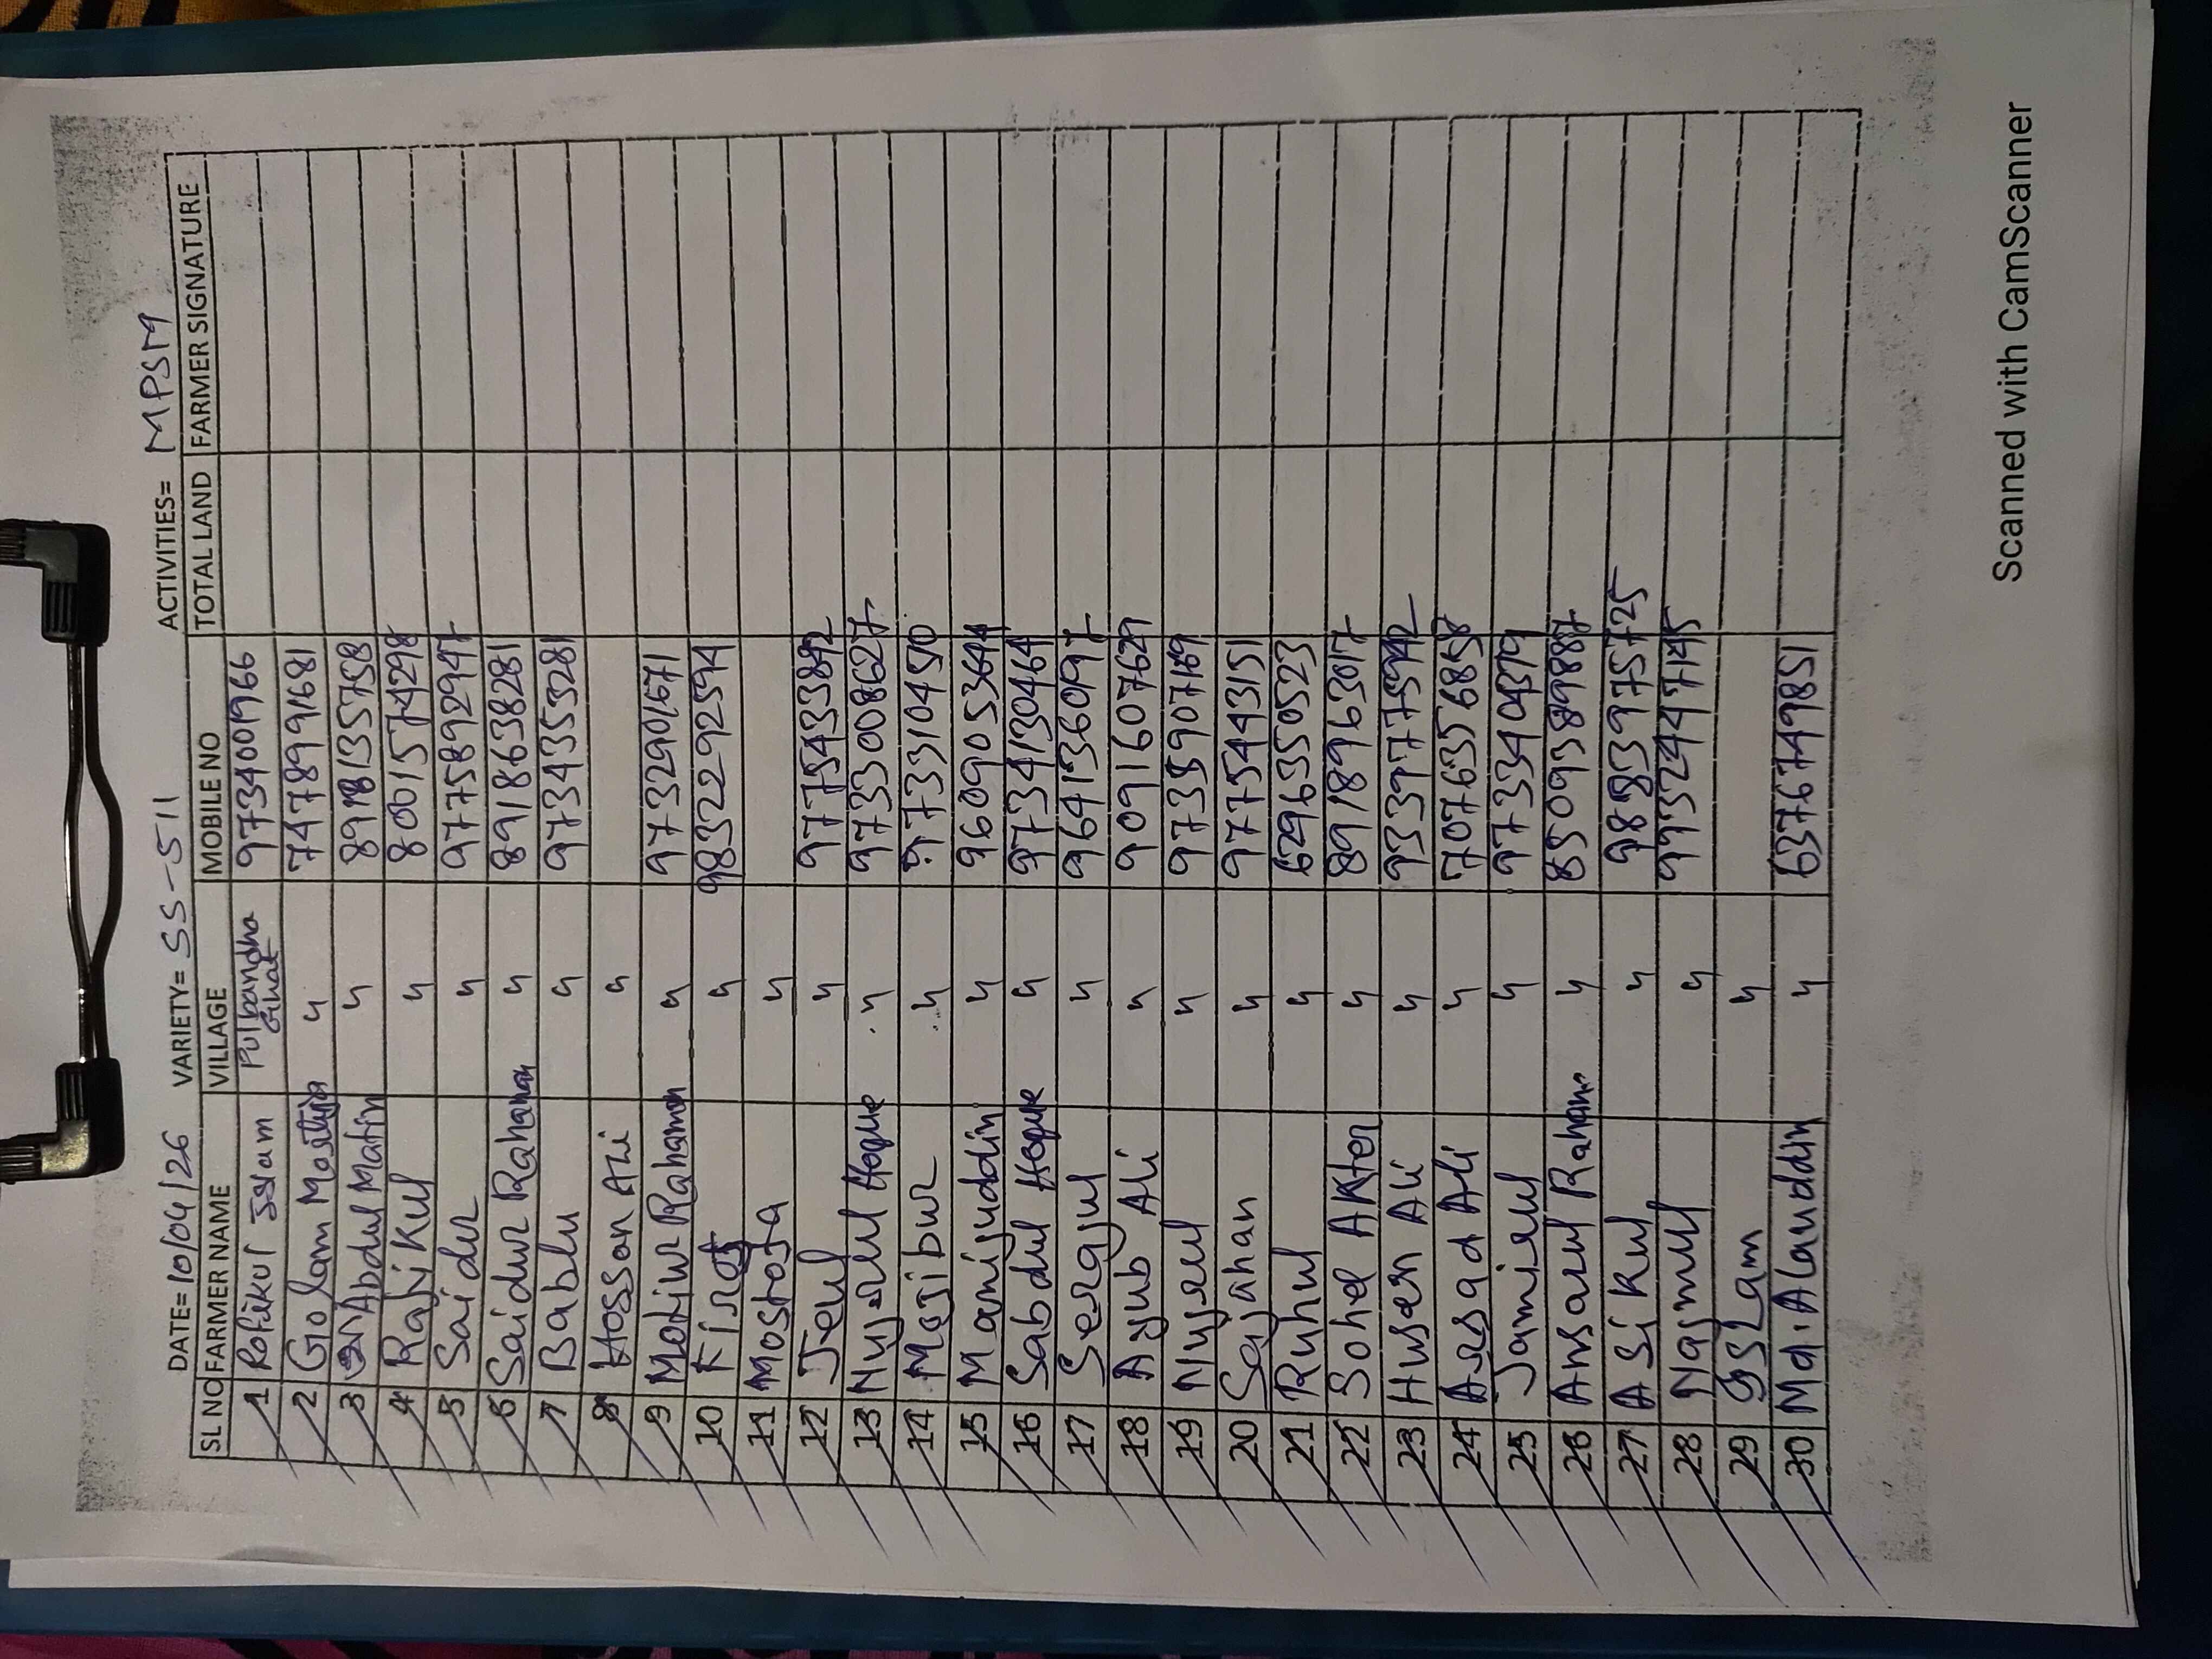 DATE= 10/04/26 VARIETY= SS-511 ACTIVITIES= MPSM
SL NO FARMER NAME VILLAGE MOBILE NO TOTAL LAND FARMER SIGNATURE
1 Rofikul Islam Pulbandha Ghat 9734001966
2 Golam Mostafa " 7478991681
3 Abdul Matin " 8918135758
4 Rafikul " 8001574298
5 Saidur " 9775892947
6 Saidur Rahaman " 8918638281
7 Bablu " 9734353281
8 Hossan Ali "
9 Motiur Rahaman " 9732901671
10 Firoj " 9832292594
11 Mostofa "
12 Jerul " 9775433892
13 Nujrul Hoque " 9733008627
14 Mojibur " 9733104510
15 Mamijuddin " 9609053644
16 Sabdul Hoque " 9734130464
17 Serajul " 9641360197
18 Ayub Ali " 9091607629
19 Nujrul " 9735907169
20 Sajahan " 9775443151
21 Ruhul " 6296350523
22 Sohel Akter " 8918963017
23 Husen Ali " 9339775942
24 Arsad Ali " 7076356858
25 Jamirul " 9733404379
26 Ansarul Rahaman " 8509389887
27 Asikul " 9883975725
28 Nasmul " 9932447145
29 Islam "
30 Md. Alauddin " 6376749851
Scanned with CamScanner